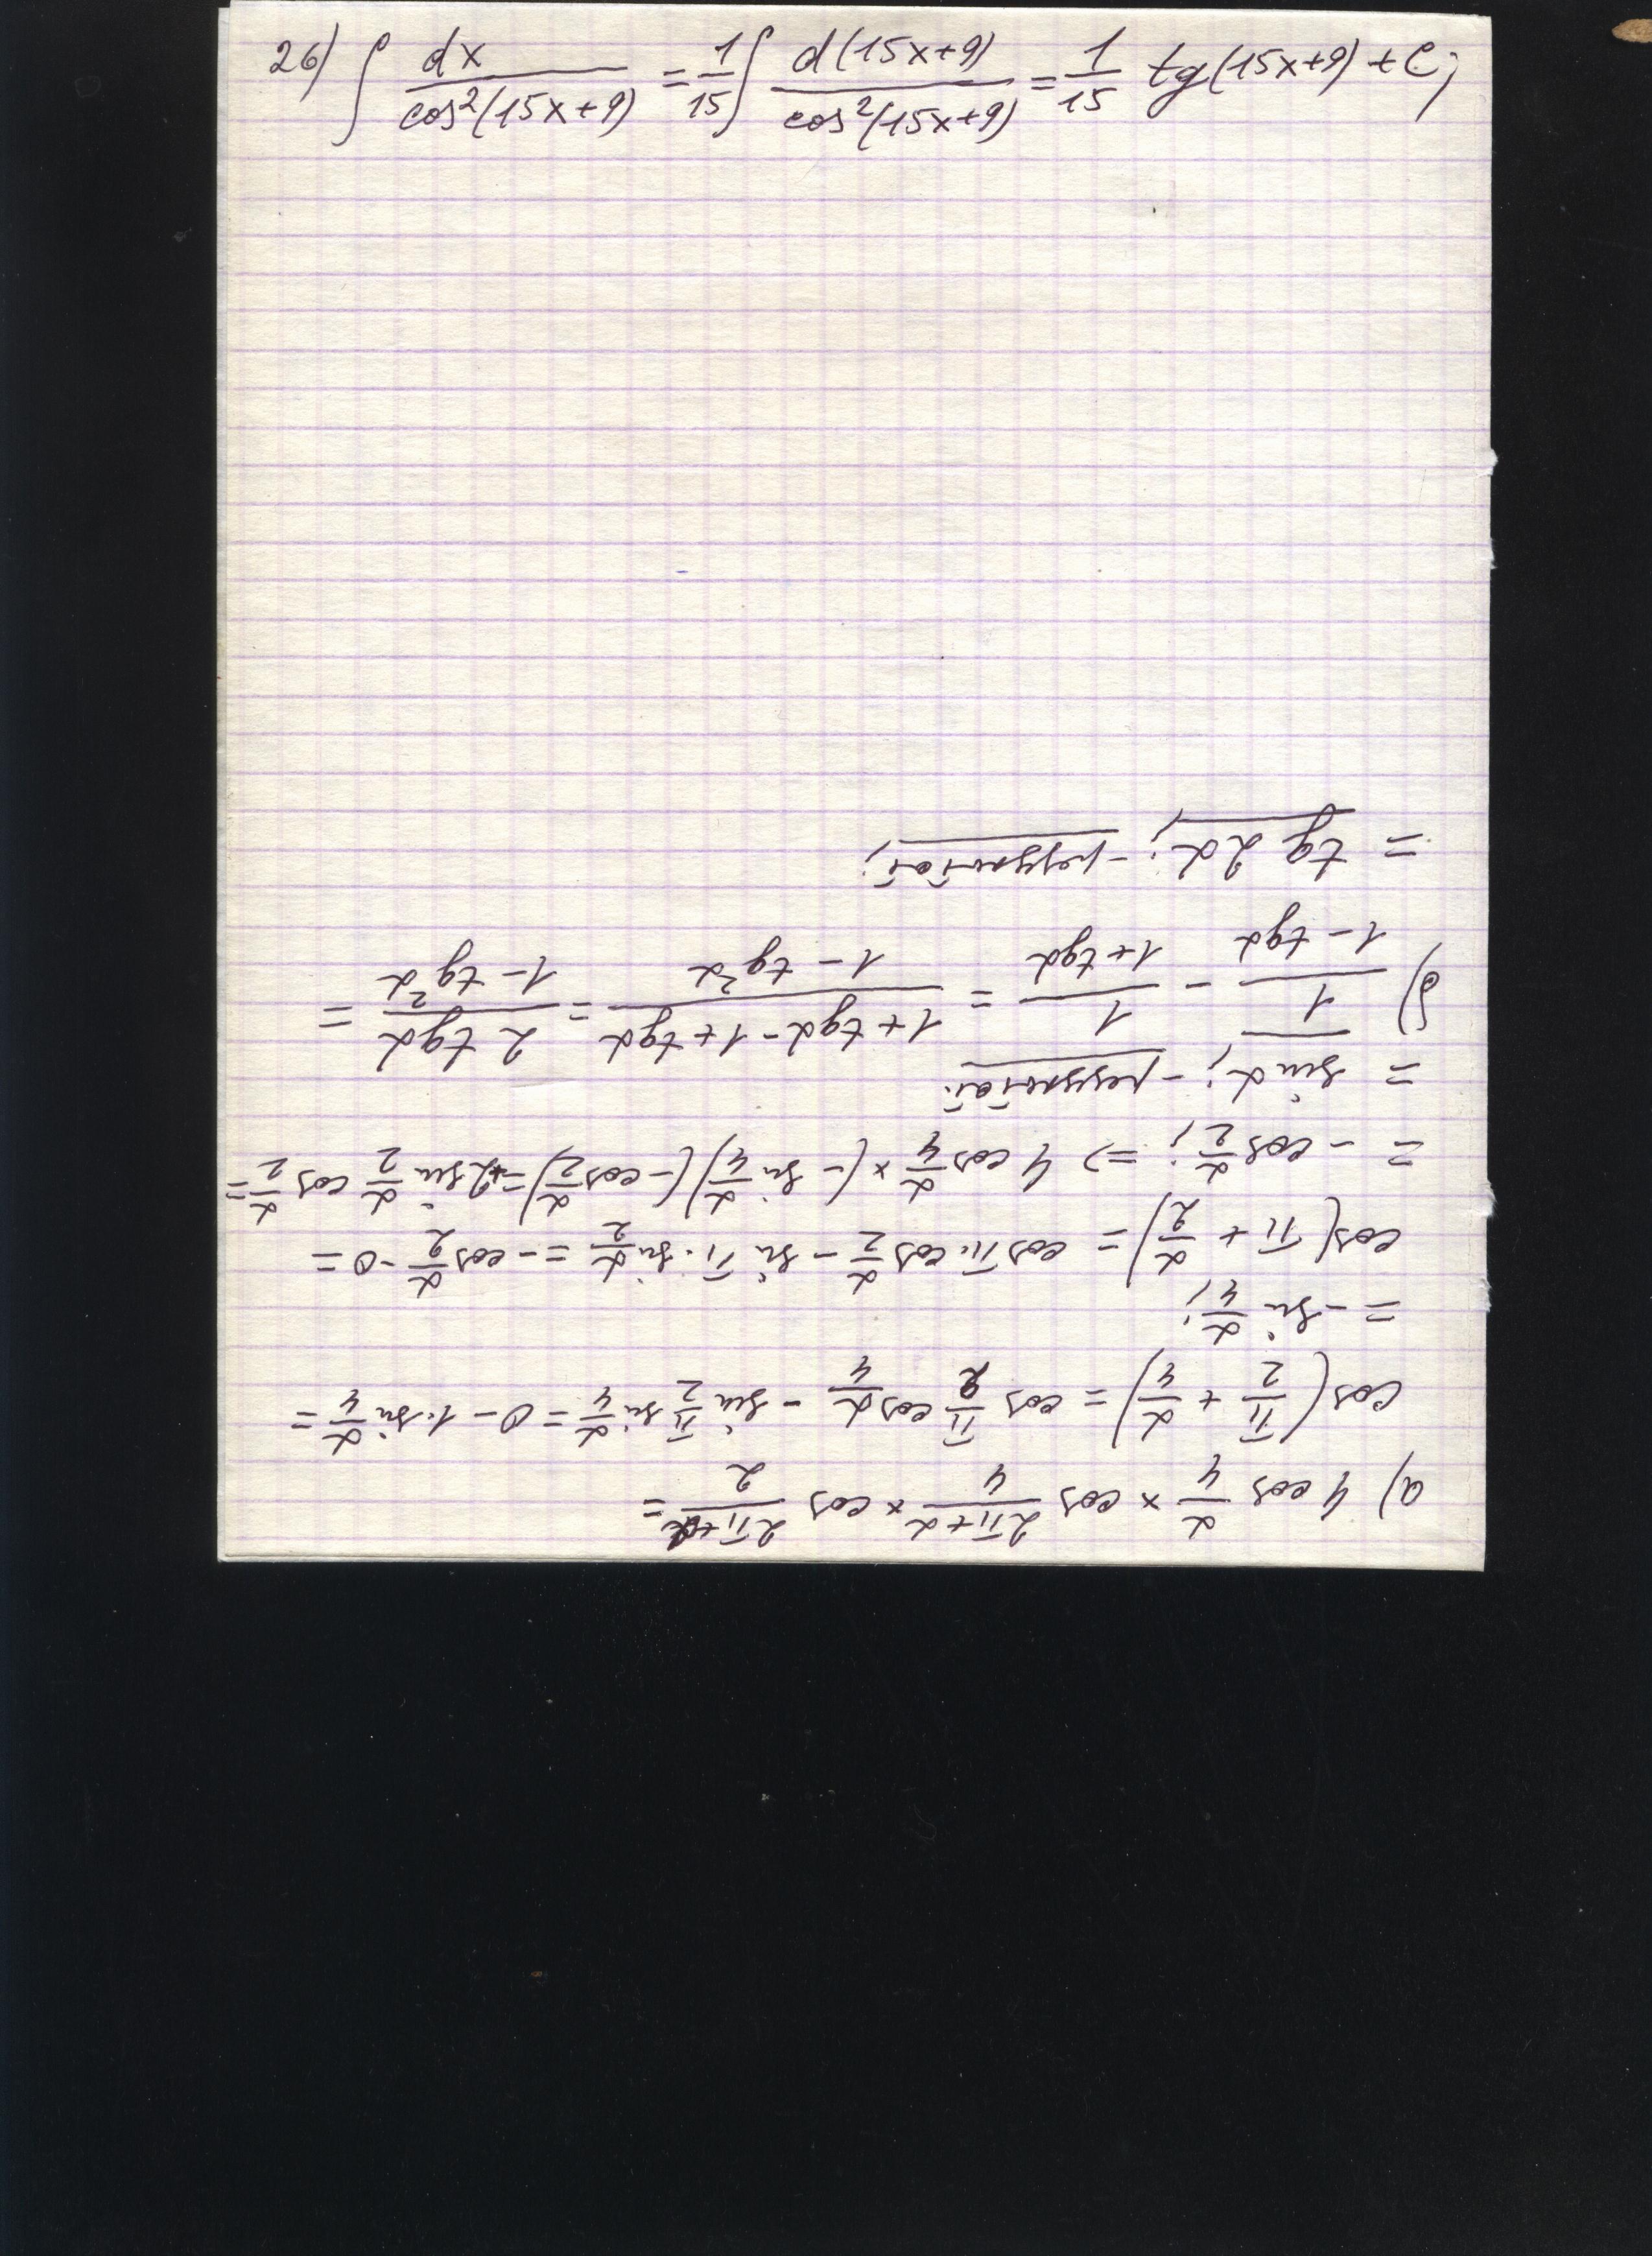 26) ∫ dx / cos²(15x+9) = 1/15 ∫ d(15x+9) / cos²(15x+9) = 1/15 tg(15x+9) + C;
a) 4 cos α/4 × cos (2π+α)/4 × cos (2π+α)/2 =
cos(π/2 + α/4) = cos π/2 cos α/4 - sin π/2 sin α/4 = 0 - 1·sin α/4 =
= - sin α/4;
cos(π + α/2) = cos π · cos α/2 - sin π · sin α/2 = - cos α/2 - 0 =
= - cos α/2; ⇒ 4 cos α/4 × (- sin α/4)(- cos α/2) = +2 sin α/2 cos α/2 =
= sin α; - результат.
б) 1/(1 - tgα) - 1/(1 + tgα) = (1 + tgα - 1 + tgα)/(1 - tg²α) = 2 tgα/(1 - tg²α) =
= tg 2α; - результат;